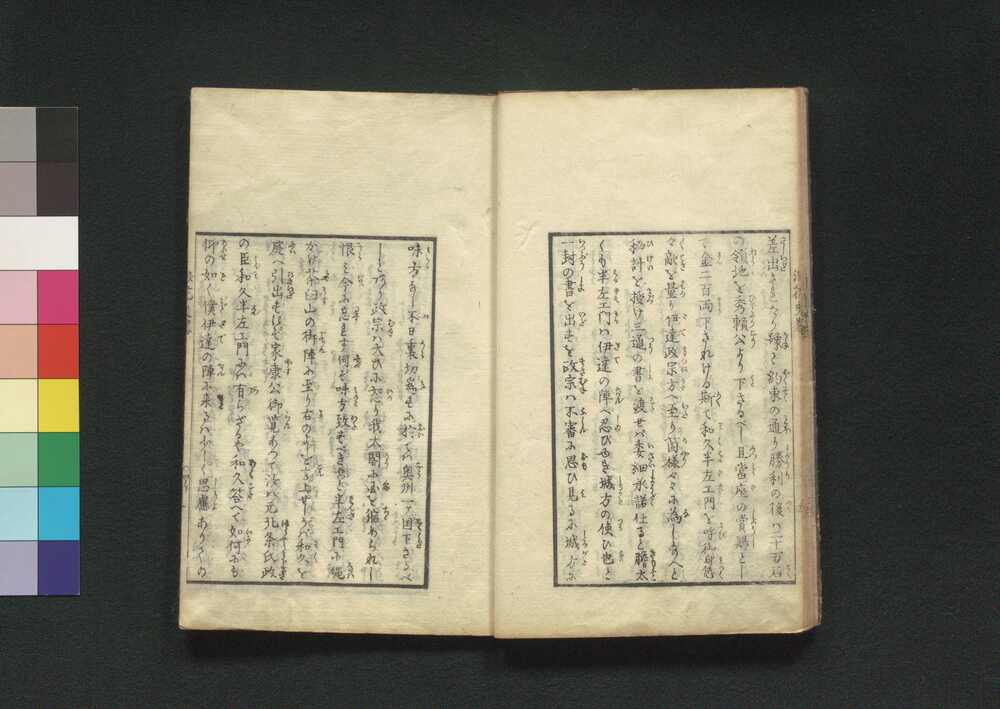 差出すまじくとなり 約束の通り勝利の後ハ二十万石
の領地を秀頼公より下さるべし且當座の賞賜とし
て金二百両下されける斯て和久半左エ門を呼
敵を量り伊達政宗方へ至り箇様々々に為しめんと
秘計を授け三通の書を渡せバ委細承諾仕ると膽太
くも半左エ門ハ伊達の陣へ忍びゆき城方の使ひ也と
一封の書を出すを政宗ハ不審に思ひ見るに城方に
味方なし不日裏切為すに於てハ奥州一ヶ国下さるべ
しとあり政宗ハ大ひに怒り我太閤に国を縮められし
恨ミ今に忘れず何ぞ味方致すべきやと半左エ門に縄
かけ茶臼山の御陣に至り右のよしを言上せしかバ和久を
庭へ引出させ家康公御覧あつて汝ハ元北条氏政
の臣和久半左エ門にハ有らざるや和久答へて如何にも
仰の如く僕伊達の陣に来るハ少しく思慮ありての